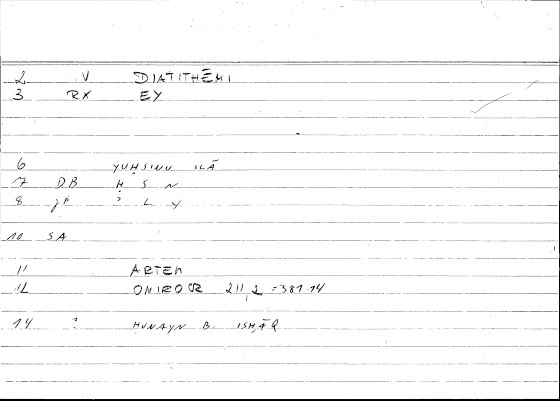 2 V DIATITHĒMI
3 RX EY
6 YUḤSINU ILĀ
7 DB Ḥ S N
8 ʾ L Y
10 SA
11 ARTEM
12 ONIROCR 211,2 = 381.14
14 ? ḤUNAYN B. ISḤĀQ